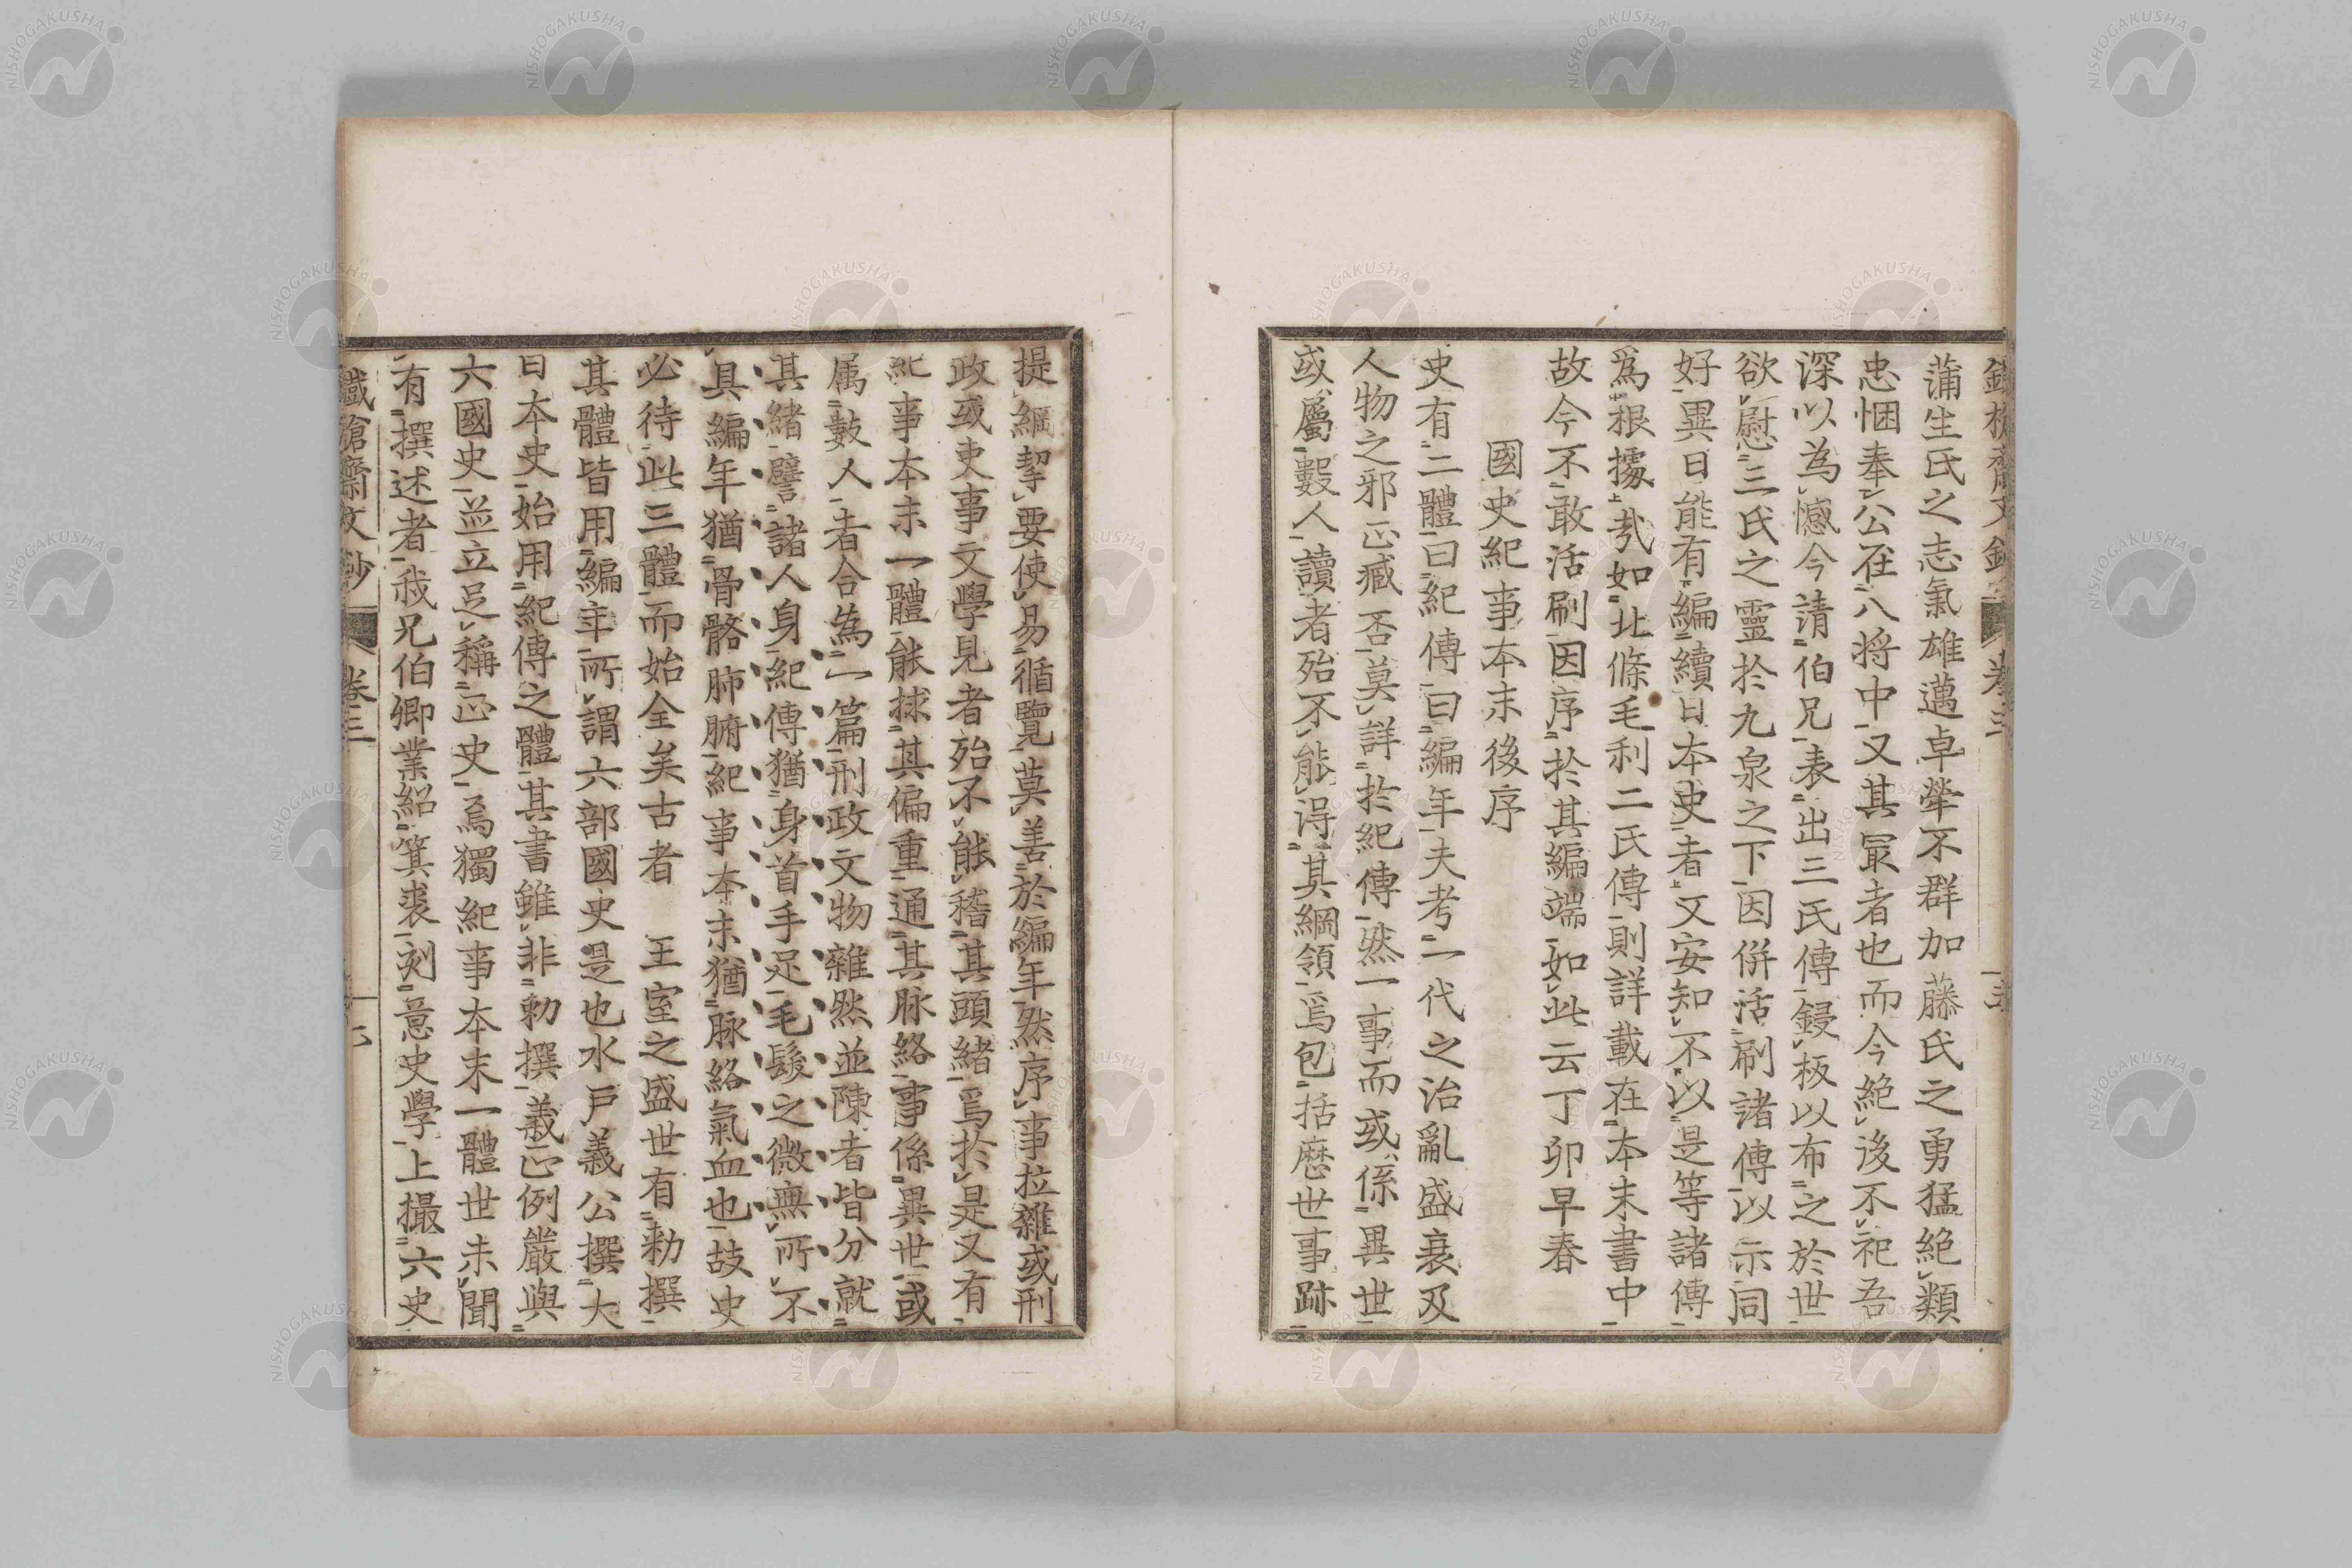 蒲生氏之志氣雄邁卓犖不群加藤氏之勇猛絶類
忠悃奉公在八將中又其最者也而今絶後不祀吾
深以為憾今請伯兄表出三氏傳鋟板以布之於世
欲慰三氏之靈於九泉之下因併活刷諸傳以示同
好異日能有編續日本史者文安知不以是等諸傳
為根據哉如北條毛利二氏傳則詳載在本末書中
故今不敢活刷因序於其編端如此云丁卯早春
國史紀事本末後序
史有二體曰紀傳曰編年夫考一代之治亂盛衰及
人物之邪正臧否莫詳於紀傳然一事而或係異世
或屬數人讀者殆不能得其綱領焉包括歷世事跡
提綱挈要使易循覽莫善於編年然序事拉雜或刑
政或吏事文學見者殆不能稽其頭緒焉於是又有
紀事本末一體能捄其偏重通其脉絡事係異世或
属數人者合為一篇刑政文物雜然並陳者皆分就
其緒譬諸人身紀傳猶身首手足毛髮之微無所不
具編年猶骨骼肺腑紀事本末猶脉絡氣血也故史
必待此三體而始全矣古者 王室之盛世有勅撰
其體皆用編年所謂六部國史是也水戶義公撰大
日本史始用紀傳之體其書雖非勅撰義正例嚴與
六國史並立足稱正史焉獨紀事本末一體世未聞
有撰述者我兄伯卿業紹箕裘刻意史學上撮六史
鐵槍齋文鈔 卷三
NISHOGAKUSHA